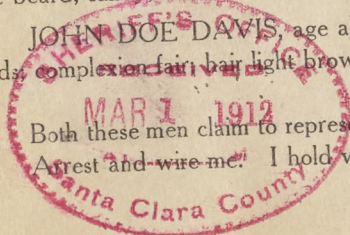 JOHN DOE DAVIS, age a
ds, complexion fair, hair light brow
Both these men claim to repres
Arrest and wire me. I hold
SHERIFF'S OFFICE
RECEIVED
MAR 1 1912
Santa Clara County